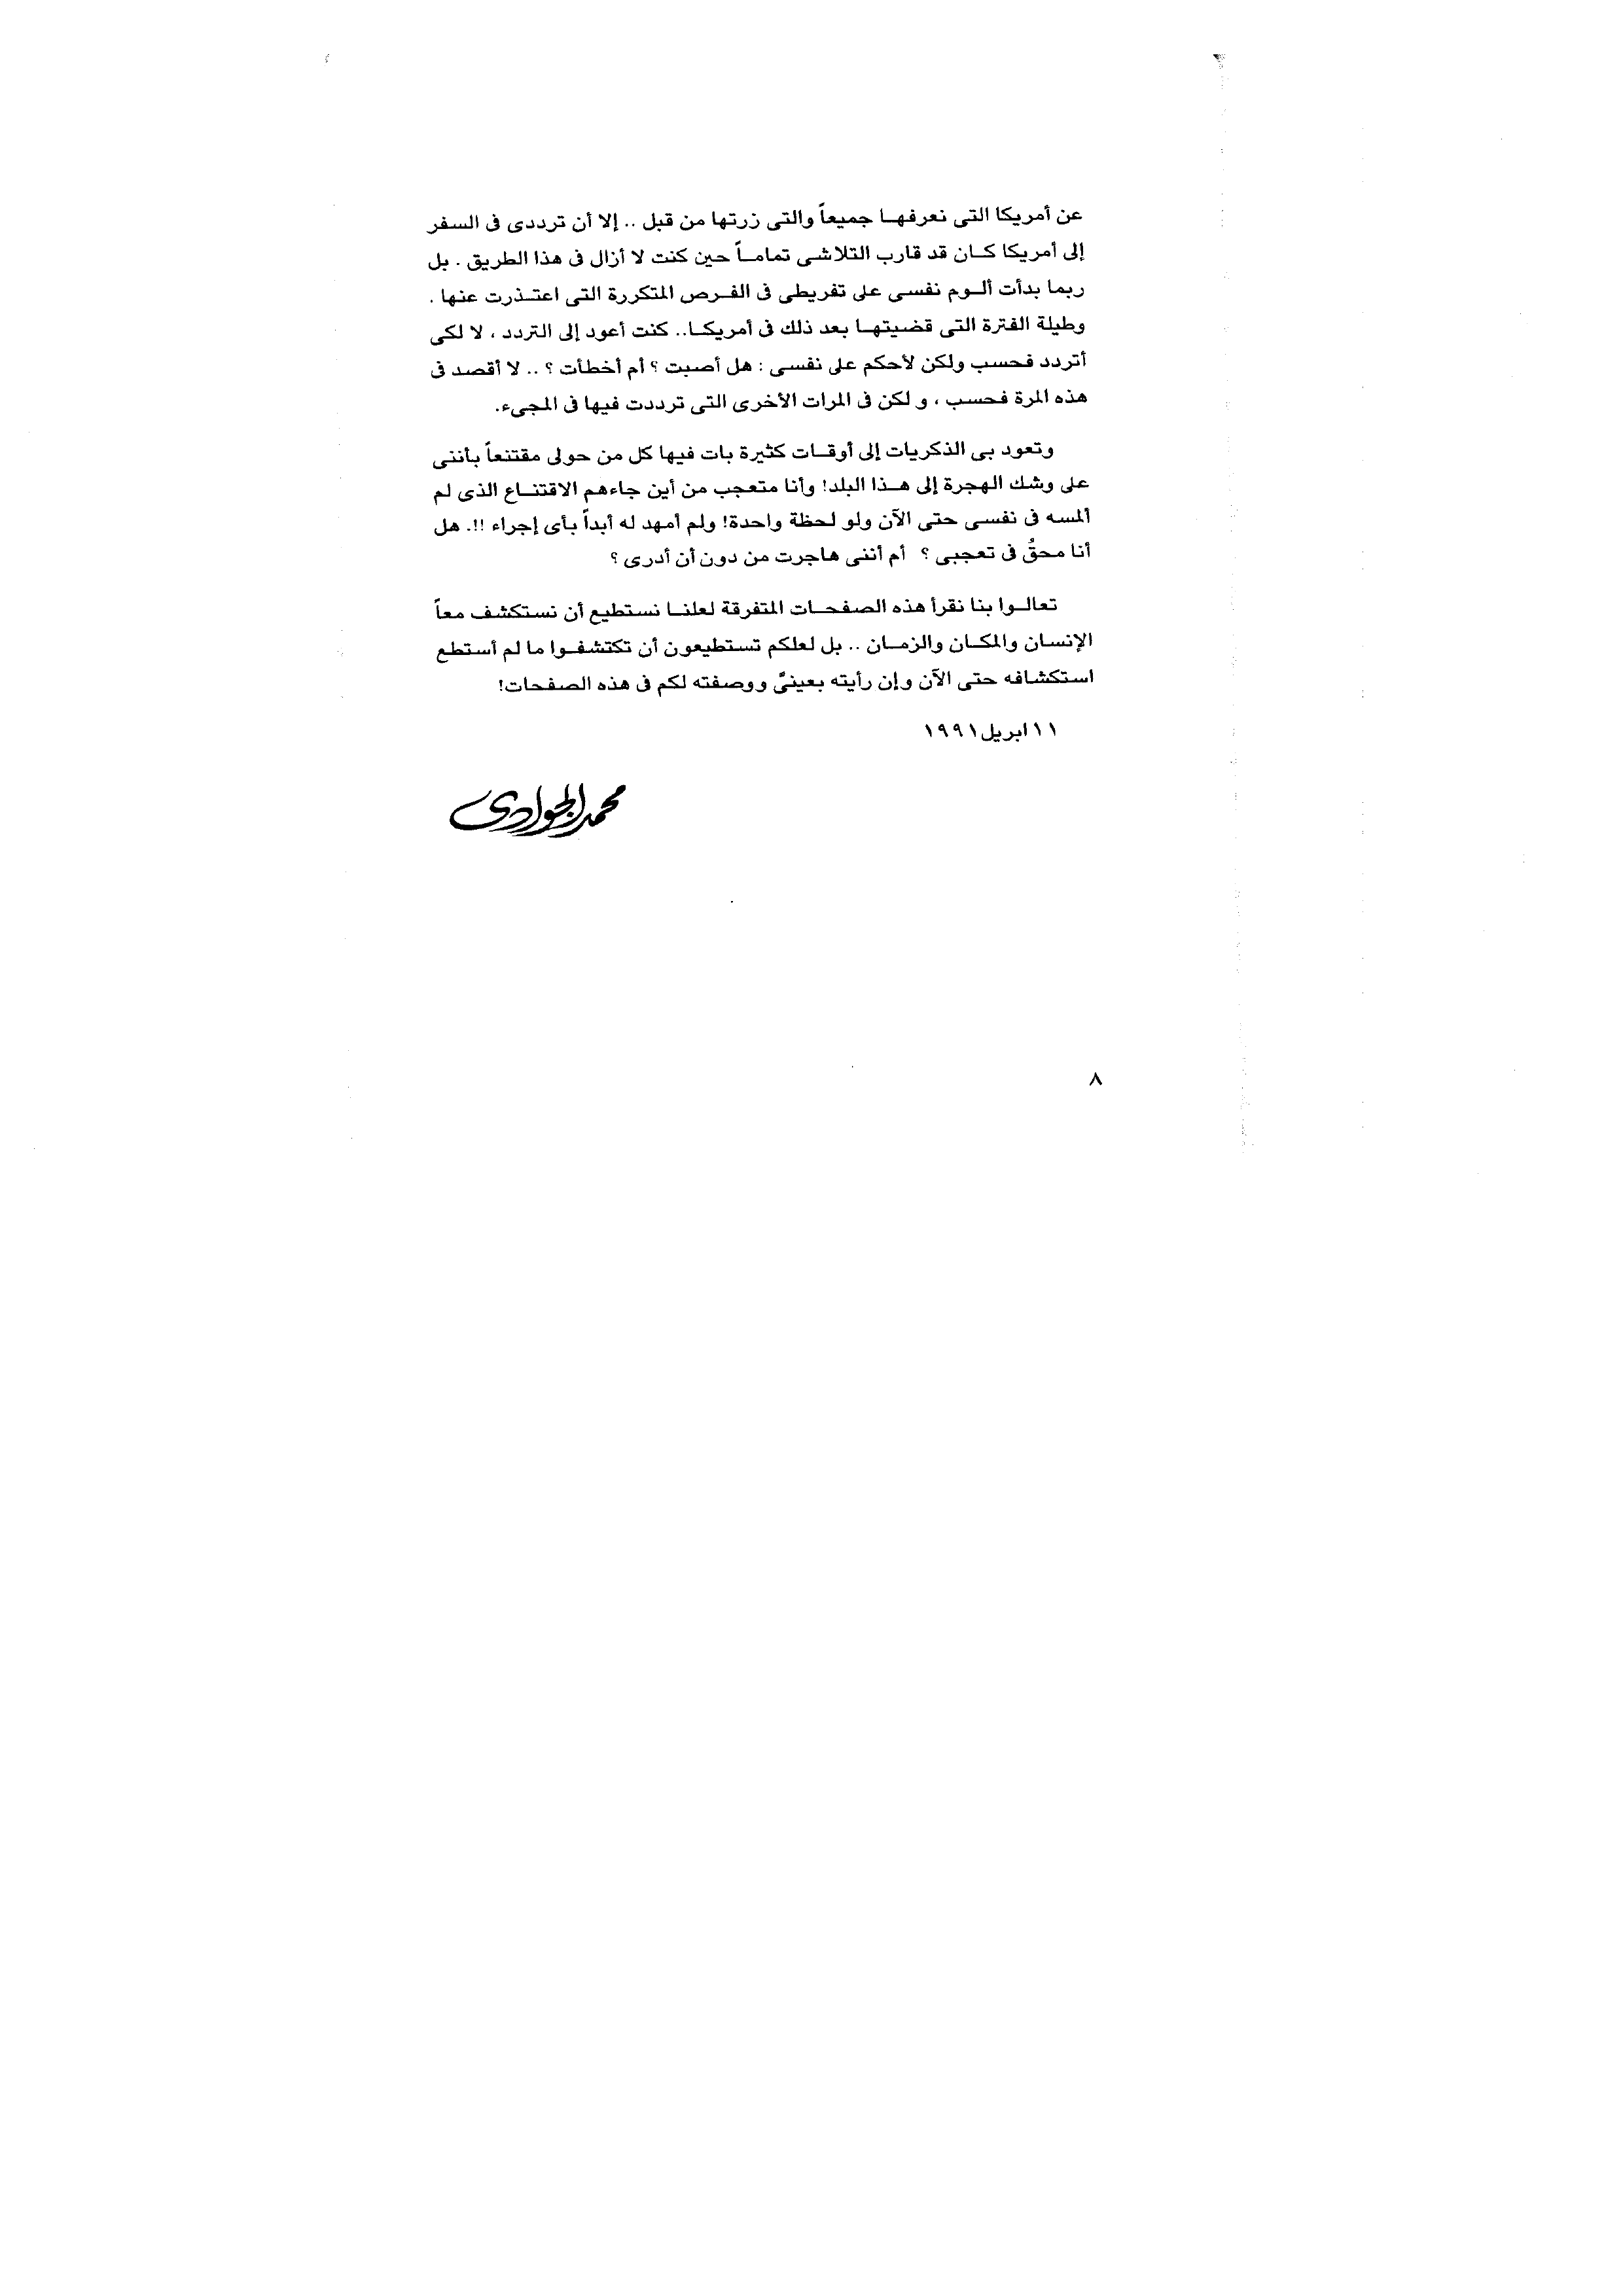 عن أمريكا التى نعرفها جميعاً والتى زرتها من قبل .. إلا أن ترددى فى السفر
إلى أمريكا كان قد قارب التلاشى تماماً حين كنت لا أزال فى هذا الطريق . بل
ربما بدأت ألوم نفسى على تفريطى فى الفرص المتكررة التى اعتذرت عنها .
وطيلة الفترة التى قضيتها بعد ذلك فى أمريكا.. كنت أعود إلى التردد ، لا لكى
أتردد فحسب ولكن لأحكم على نفسى : هل أصبت ؟ أم أخطأت ؟ .. لا أقصد فى
هذه المرة فحسب ، و لكن فى المرات الأخرى التى ترددت فيها فى المجىء.
وتعود بى الذكريات إلى أوقات كثيرة بات فيها كل من حولى مقتنعاً بأننى
على وشك الهجرة إلى هذا البلد! وأنا متعجب من أين جاءهم الاقتناع الذى لم
ألمسه فى نفسى حتى الآن ولو لحظة واحدة! ولم أمهد له أبداً بأى إجراء !!. هل
أنا محقُ فى تعجبى ؟ أم أننى هاجرت من دون أن أدرى ؟
تعالوا بنا نقرأ هذه الصفحات المتفرقة لعلنا نستطيع أن نستكشف معاً
الإنسان والمكان والزمان .. بل لعلكم تستطيعون أن تكتشفوا ما لم أستطع
استكشافه حتى الآن وإن رأيته بعينىَّ ووصفته لكم فى هذه الصفحات!
١١ ابريل ١٩٩١
محمد الجوادى
٨